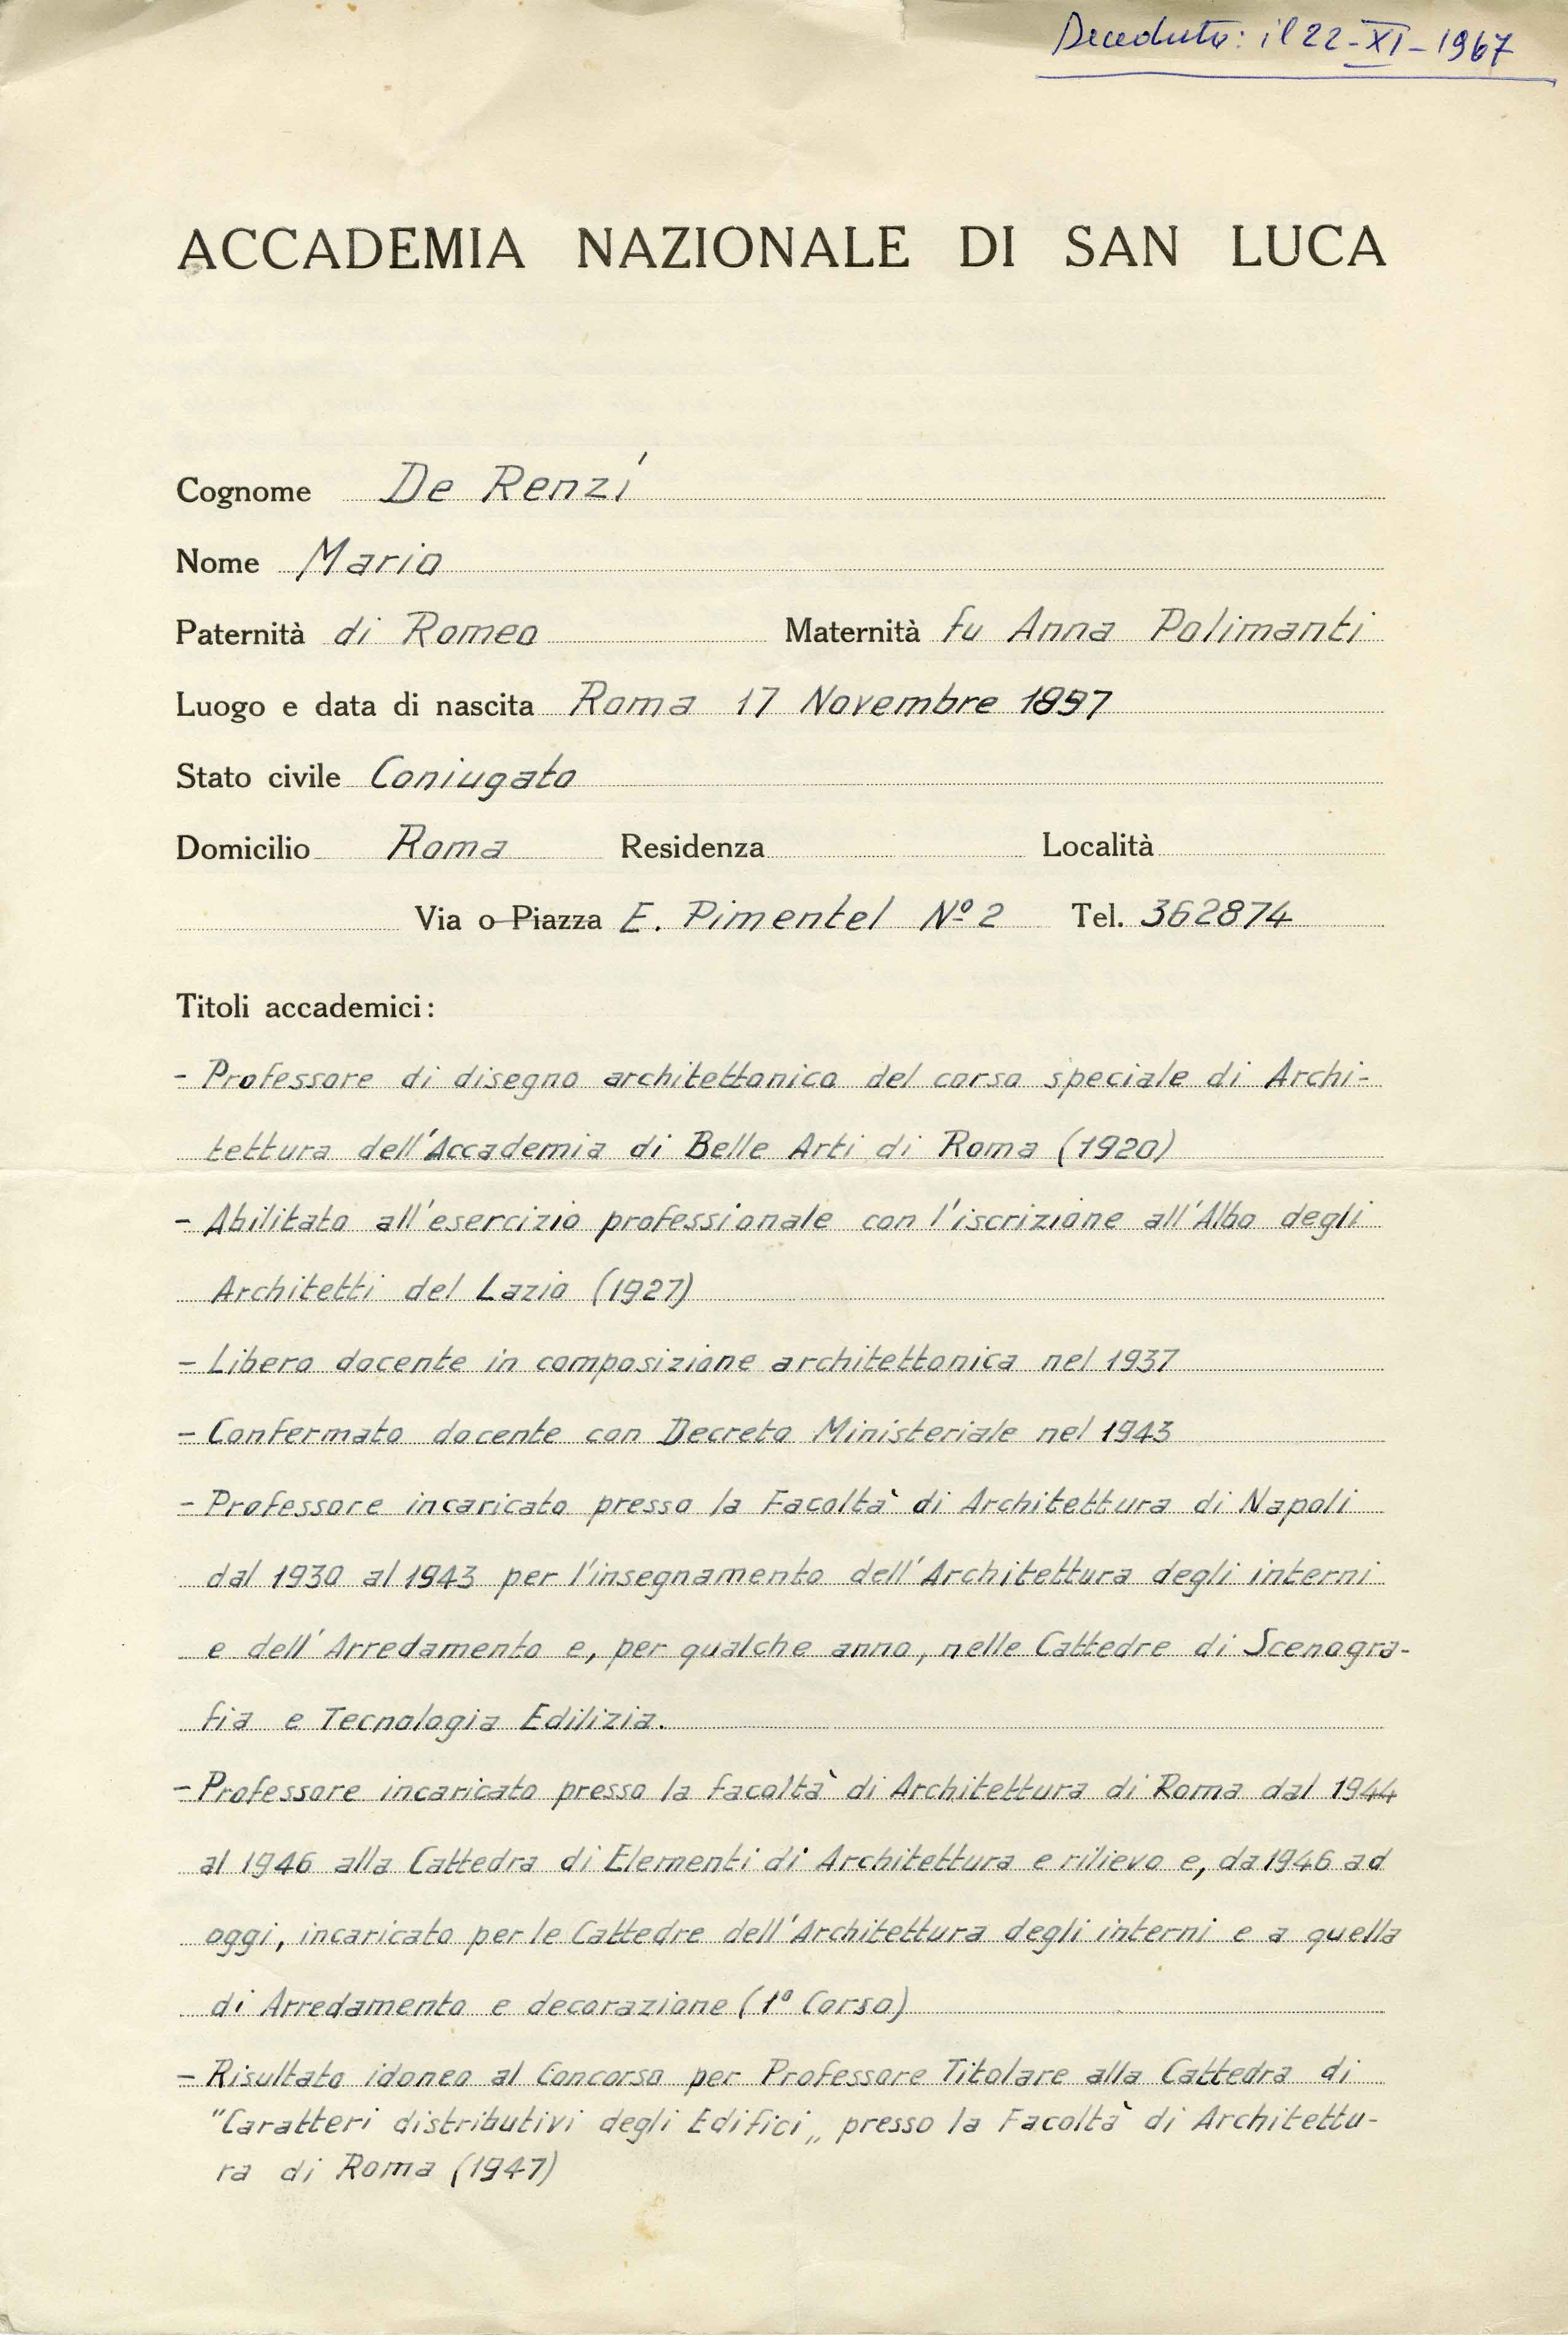 Deceduto: il 22-XI-1967
ACCADEMIA NAZIONALE DI SAN LUCA
Cognome De Renzi
Nome Mario
Paternità di Romeo Maternità fu Anna Polimanti
Luogo e data di nascita Roma 17 Novembre 1897
Stato civile Coniugato
Domicilio Roma Residenza Località
Via o Piazza E. Pimentel Nº 2 Tel. 362874
Titoli accademici:
- Professore di disegno architettonico del corso speciale di Archi-
tettura dell'Accademia di Belle Arti di Roma (1920)
- Abilitato all'esercizio professionale con l'iscrizione all'Albo degli
Architetti del Lazio (1927)
- Libero docente in composizione architettonica nel 1937
- Confermato docente con Decreto Ministeriale nel 1943
- Professore incaricato presso la Facoltà di Architettura di Napoli
dal 1930 al 1943 per l'insegnamento dell'Architettura degli interni
e dell'Arredamento e, per qualche anno, nelle Cattedre di Scenogra-
fia e Tecnologia Edilizia.
- Professore incaricato presso la facoltà di Architettura di Roma dal 1944
al 1946 alla Cattedra di Elementi di Architettura e rilievo e, da 1946 ad
oggi, incaricato per le Cattedre dell'Architettura degli interni e a quella
di Arredamento e decorazione (1º Corso)
- Risultato idoneo al Concorso per Professore Titolare alla Cattedra di
"Caratteri distributivi degli Edifici„ presso la Facoltà di Architettu-
ra di Roma (1947)